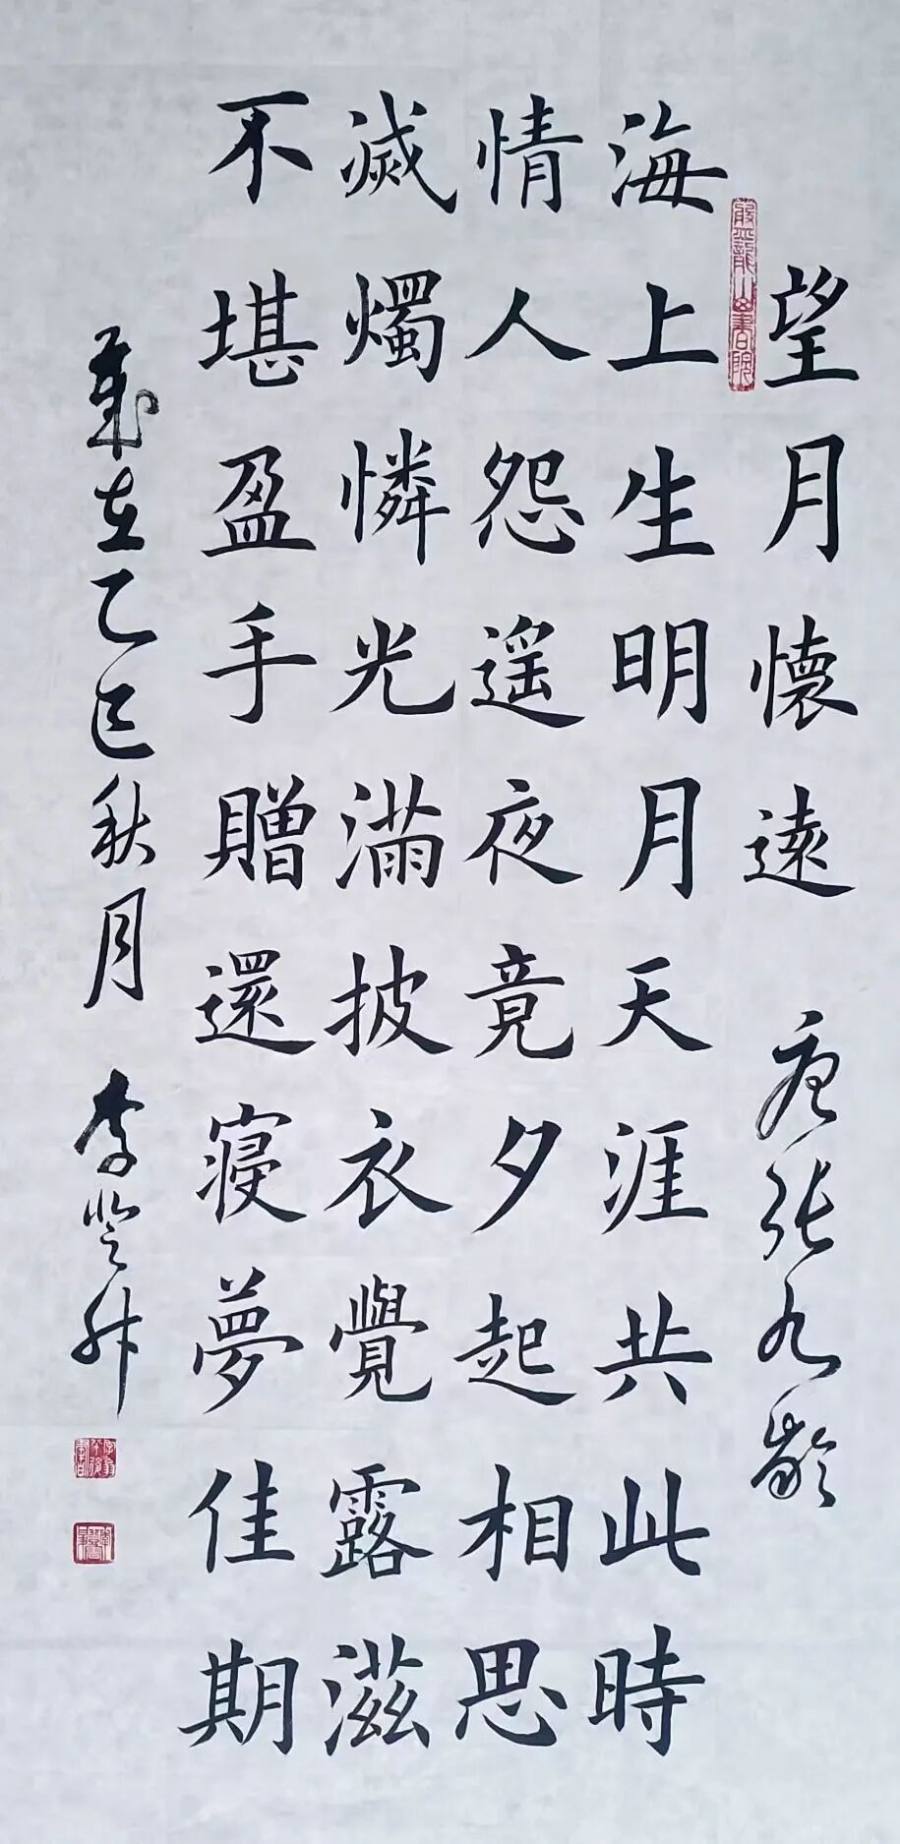 望月懷遠 唐張九齡
海上生明月天涯共此時
情人怨遥夜竟夕起相思
滅燭憐光滿披衣覺露滋
不堪盈手贈還寢夢佳期
歲在乙巳秋月 李登升